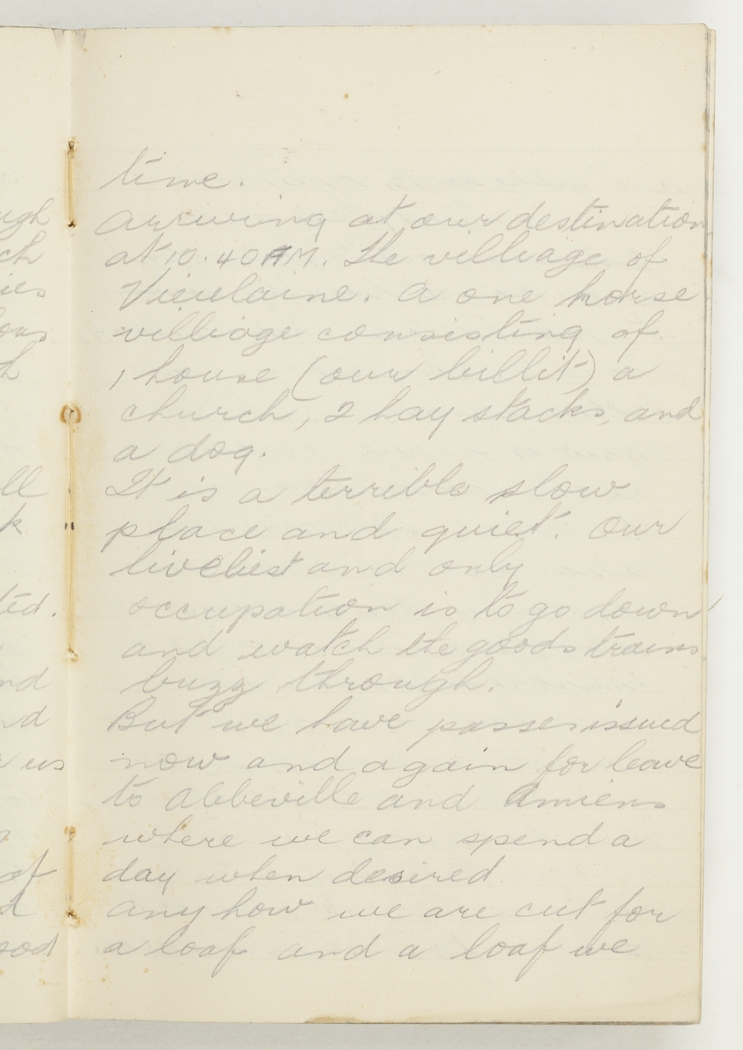 time.
Arriving at our destination
at 10.40 AM. The villiage of
Vieulaine. A one horse
villiage consisting of
1 house (our billit) a
church, 2 hay stacks, and
a dog.
It is a terrible slow
place and quiet. Our
liveliest and only
occupation is to go down
and watch the goods trains
buzz through.
But we have passes issued
now and again for leave
to Abbeville and Amiens
where we can spend a
day when desired
anyhow we are out for
a loaf and a loaf we
ugh
ch
ies
h
ll
k
ted.
nd
nd
us
of
d
ood